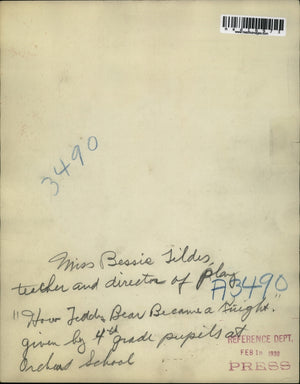 3490
Miss Bessie Tildes,
teacher and director of play
A3490
"How Teddy Bear Became a Knight."
given by 4th grade pupils at
Orchard School
REFERENCE DEPT.
FEB 18 1930
PRESS